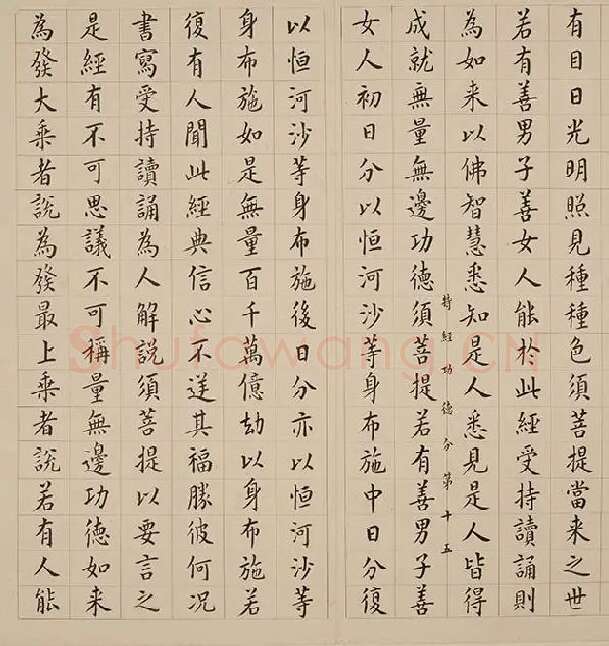 有目日光明照見種種色須菩提當来之世
若有善男子善女人能於此經受持讀誦則
為如来以佛智慧悉知是人悉見是人皆得
持經功德分第十五
成就無量無邊功德須菩提若有善男子善
女人初日分以恒河沙等身布施中日分復
以恒河沙等身布施後日分亦以恒河沙等
身布施如是無量百千萬億劫以身布施若
復有人聞此經典信心不逆其福勝彼何況
書寫受持讀誦為人解說須菩提以要言之
是經有不可思議不可稱量無邊功德如来
為發大乘者說為發最上乘者說若有人能
Shufawang.CN